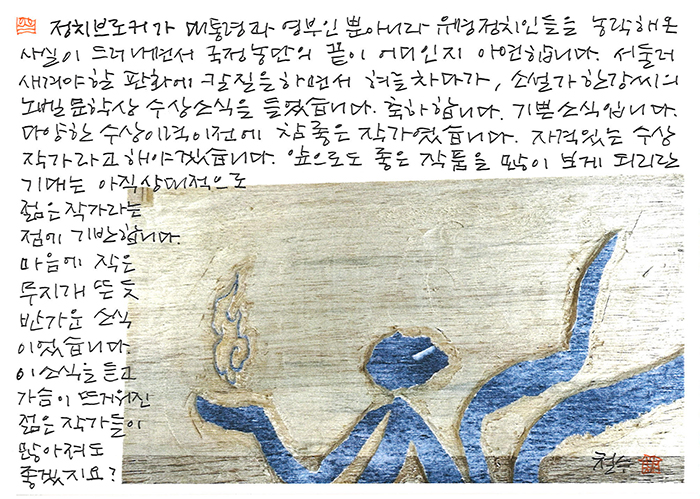 정치브로커가 대통령과 영부인 뿐아니라 유력정치인들을 농락해온
사실이 드러나면서 국정농단의 끝이 어디인지 아연합니다. 서둘러
새겨야할 판화에 칼질을하면서 혀를차다가, 소설가한강씨의
노벨문학상 수상소식을 들었습니다. 축하합니다. 기쁜소식입니다.
다양한 수상이력이전에 참좋은 작가였습니다. 자격있는 수상
작가라고해야겠습니다. 앞으로도 좋은 작품을 많이 보게 되리란
기대는 아직상대적으로
젊은작가라는
점에 기반합니다.
마음에 작은
무지개 뜬듯
반가운 소식
이었습니다.
이소식을 듣고
가슴이 뜨거워진
젊은 작가들이
많아져도
좋겠지요?
철수